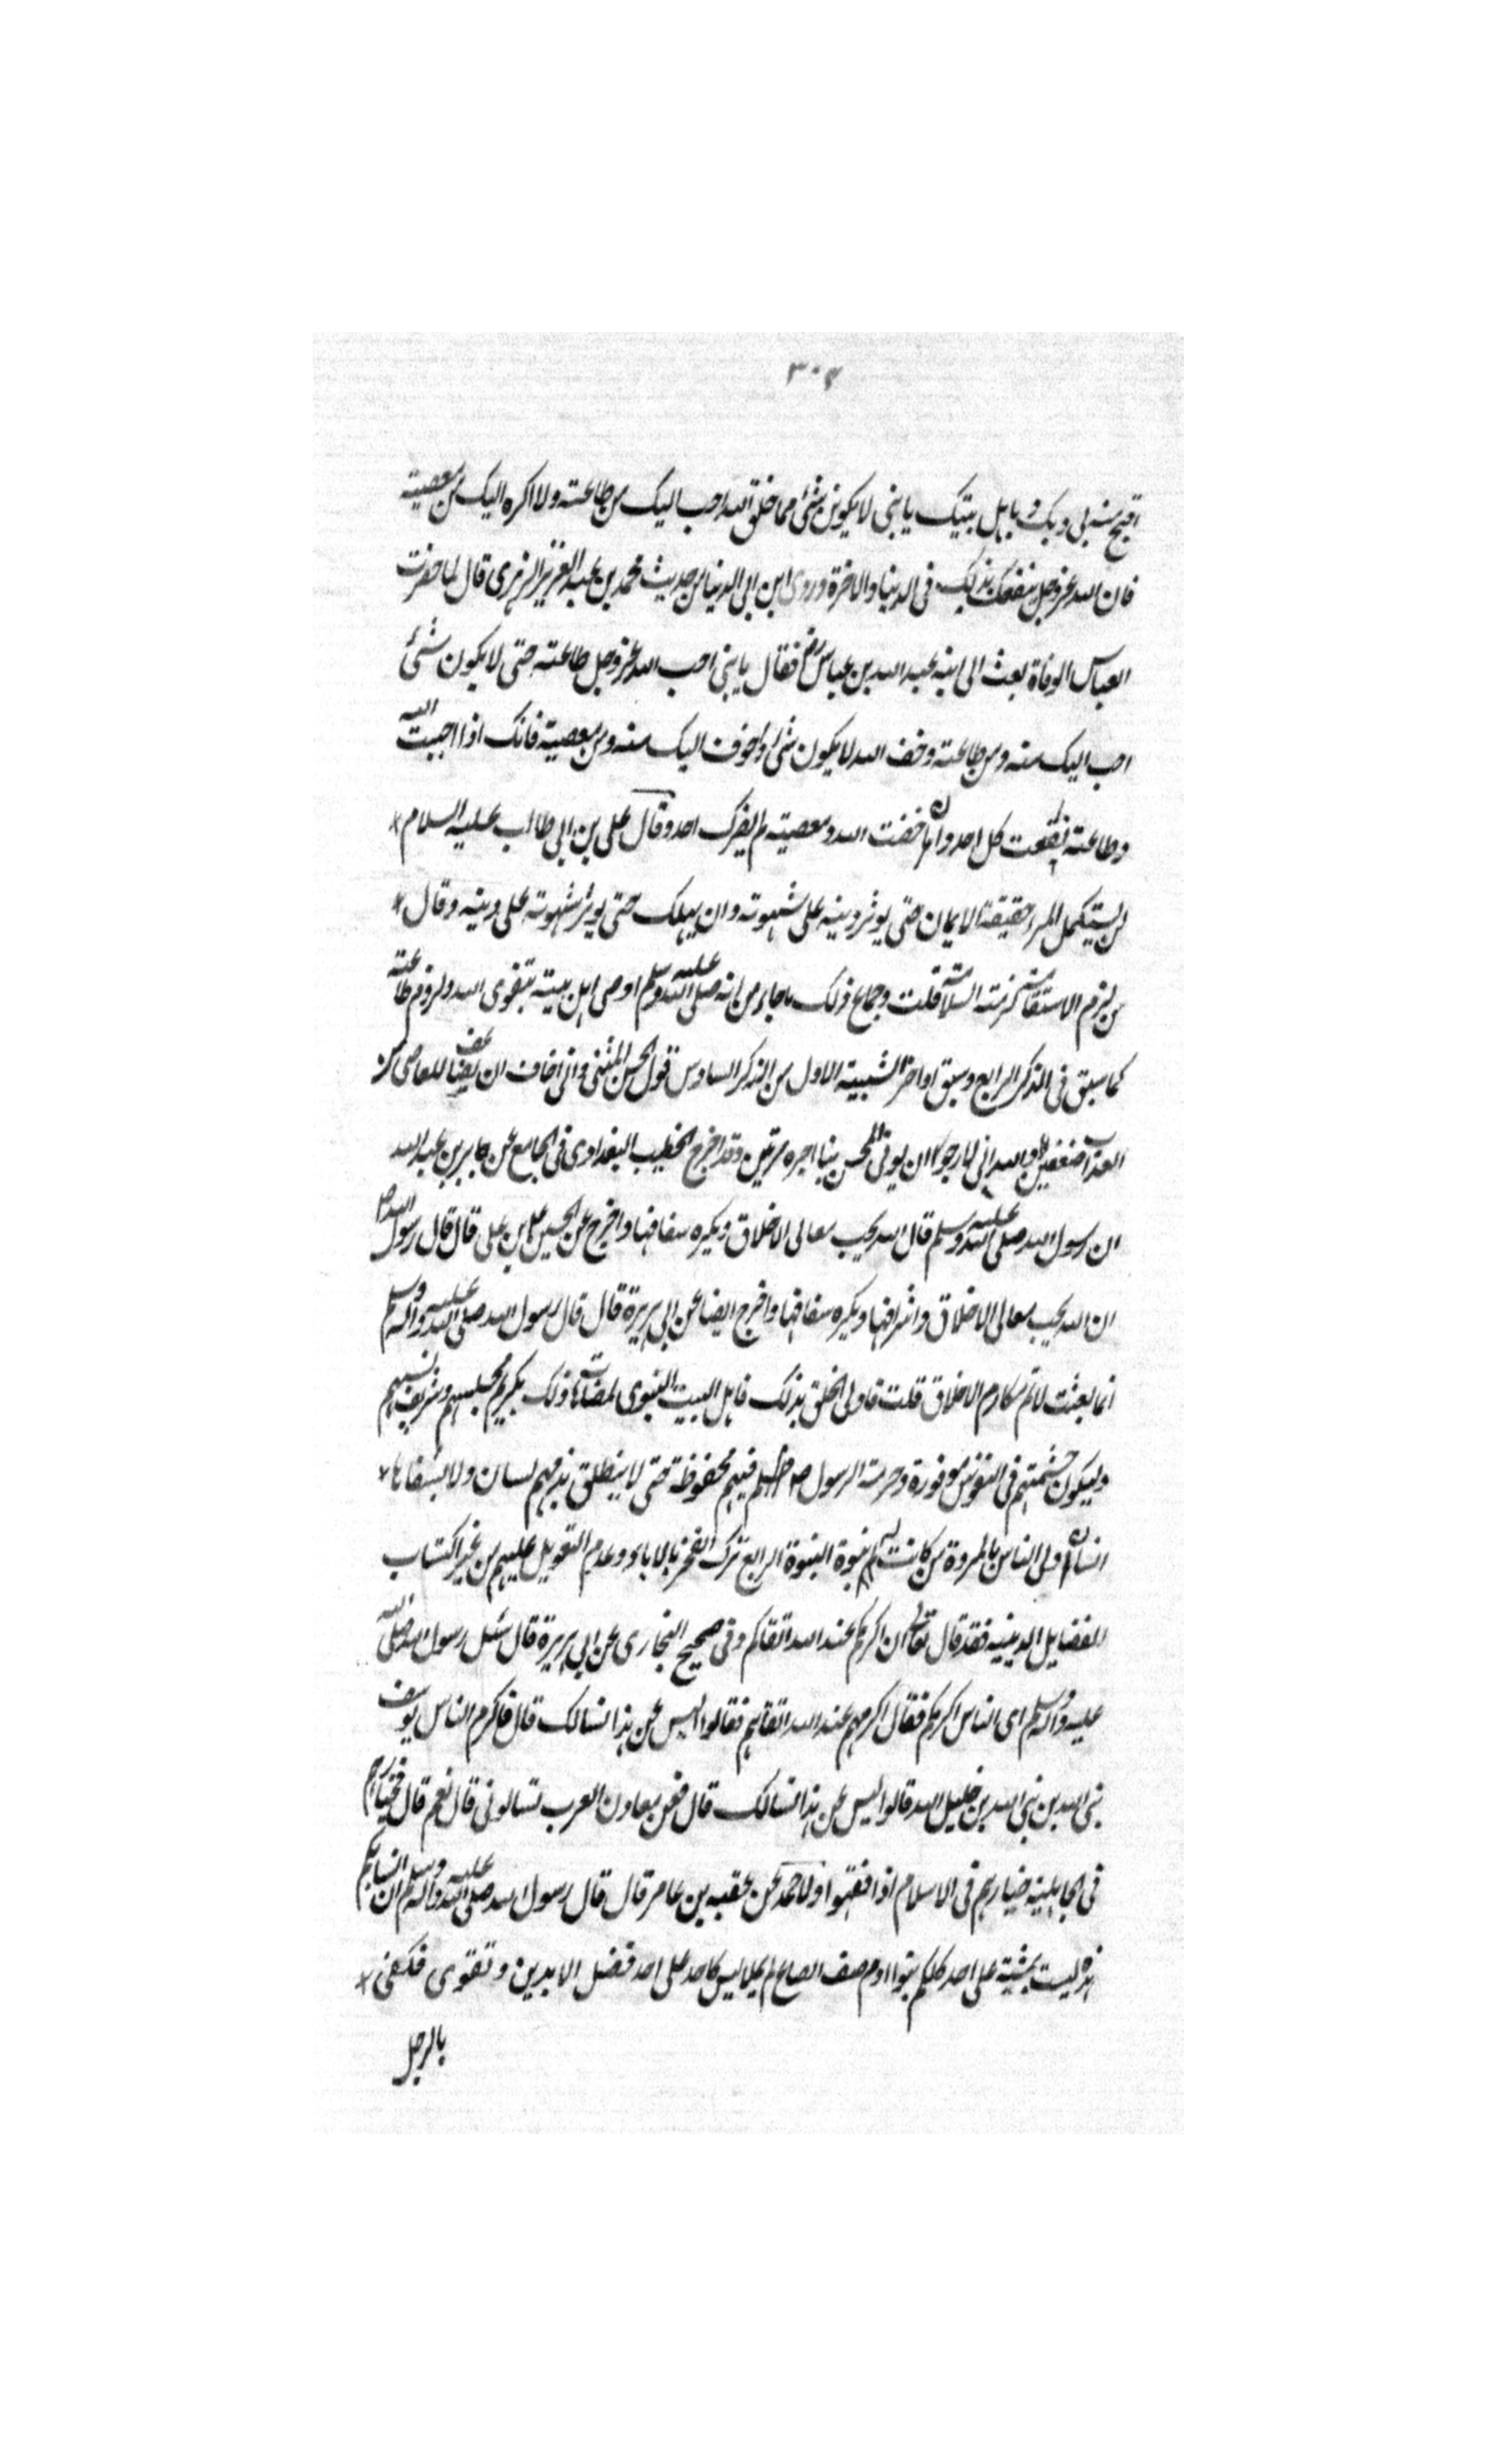 ٣٠٢
اقبح منه بى وبك و باهل بيتك يا بنى لا يكونن شئ مما خلق الله احب اليك من طاعته ولا اكره اليك من معصيته
فان الله عز وجل ينفعك بذلك فى الدنيا والاخرة وروى ابن ابى الدنيا من حديث محمد بن عبد العزيز الزهرى قال لما حضرت
العباس الوفاة بعث الى ابنه عبد الله بن عباس رض فقال يا بنى احب الله عز وجل طاعته حتى لا يكون شئ
احب اليك منه ومن طاعته وخف الله لا يكون شئ اخوف اليك منه ومن معصيته فانك اذا احببت الله
وطاعته نفعت كل احد واذا خفت الله ومعصيته لم يضرك احد وقال على بن ابى طالب عليه السلام *
لن يستكمل المرء حقيقة الايمان حتى يوثر دينه على شهوته وان يهلك حتى يوثر شهوته على دينه وقال *
من لزم الاستقامة لزمته السلامة قلت وجماع ذلك ما جاء من انه صلى الله عليه وسلم اوصى اهل بيته بتقوى الله ولزوم طاعته
كما سبق فى الذكر الرابع وسبق اواخر التنبيه الاول من الذكر السادس قول الحسن المثنى وانى اخاف ان يضاعف للعاصى منا
العذاب ضعفين والله انى لارجو ان يوتى المحسن منا اجره مرتين وقد اخرج الخطيب البغدادى فى الجامع عن جابر بن عبد الله
ان رسول الله صلى الله عليه وسلم قال الله يحب معالى الاخلاق ويكره سفاسفها واخرج عن الحسين بن على قال قال رسول الله ص
ان الله يحب معالى الاخلاق واشرافها ويكره سفاسفها واخرج ايضا عن ابى هريرة قال قال رسول الله صلى الله عليه وآله وسلم
انما بعثت لاتمم مكارم الاخلاق قلت فاولى الخلق بذلك فاهل البيت النبوى ذلك بكريم مجلسهم وشريف نسبهم
وليكون حشمتهم فى النفوس موفورة وحرمة الرسول فيهم محفوظة حتى لا ينطلق بذمهم لسان ولا يشناها *
انسان اولى الناس بالمروة من كانت له بنوة النبوة الرابع ترك الفخر بالاباء وعدم التعويل عليهم من غير اكتساب
للفضايل الدينيه فقد قال تعالى ان اكرمكم عند الله اتقاكم وفى صحيح البخارى عن ابى هريرة قال سئل رسول الله صلى الله
عليه وآله وسلم اى الناس اكرم فقال اكرمهم عند الله اتقاهم فقالوا ليس عن هذا نسالك قال فاكرم الناس يوسف
نبى الله بن نبى الله بن خليل الله قالوا ليس عن هذا نسالك قال فعن معادن العرب تسالونى قال نعم قال فخيارهم
فى الجاهلية خيارهم فى الاسلام اذا فقهوا ولاحمد عن عقبه بن عامر قال قال رسول الله صلى الله عليه وآله وسلم ان انسابكم
هذه ليست بمسبة على احد كلكم بنوا ادم الصاع ليس لاحد على احد فضل الا بدين وتقوى فكفى *
بالرجل